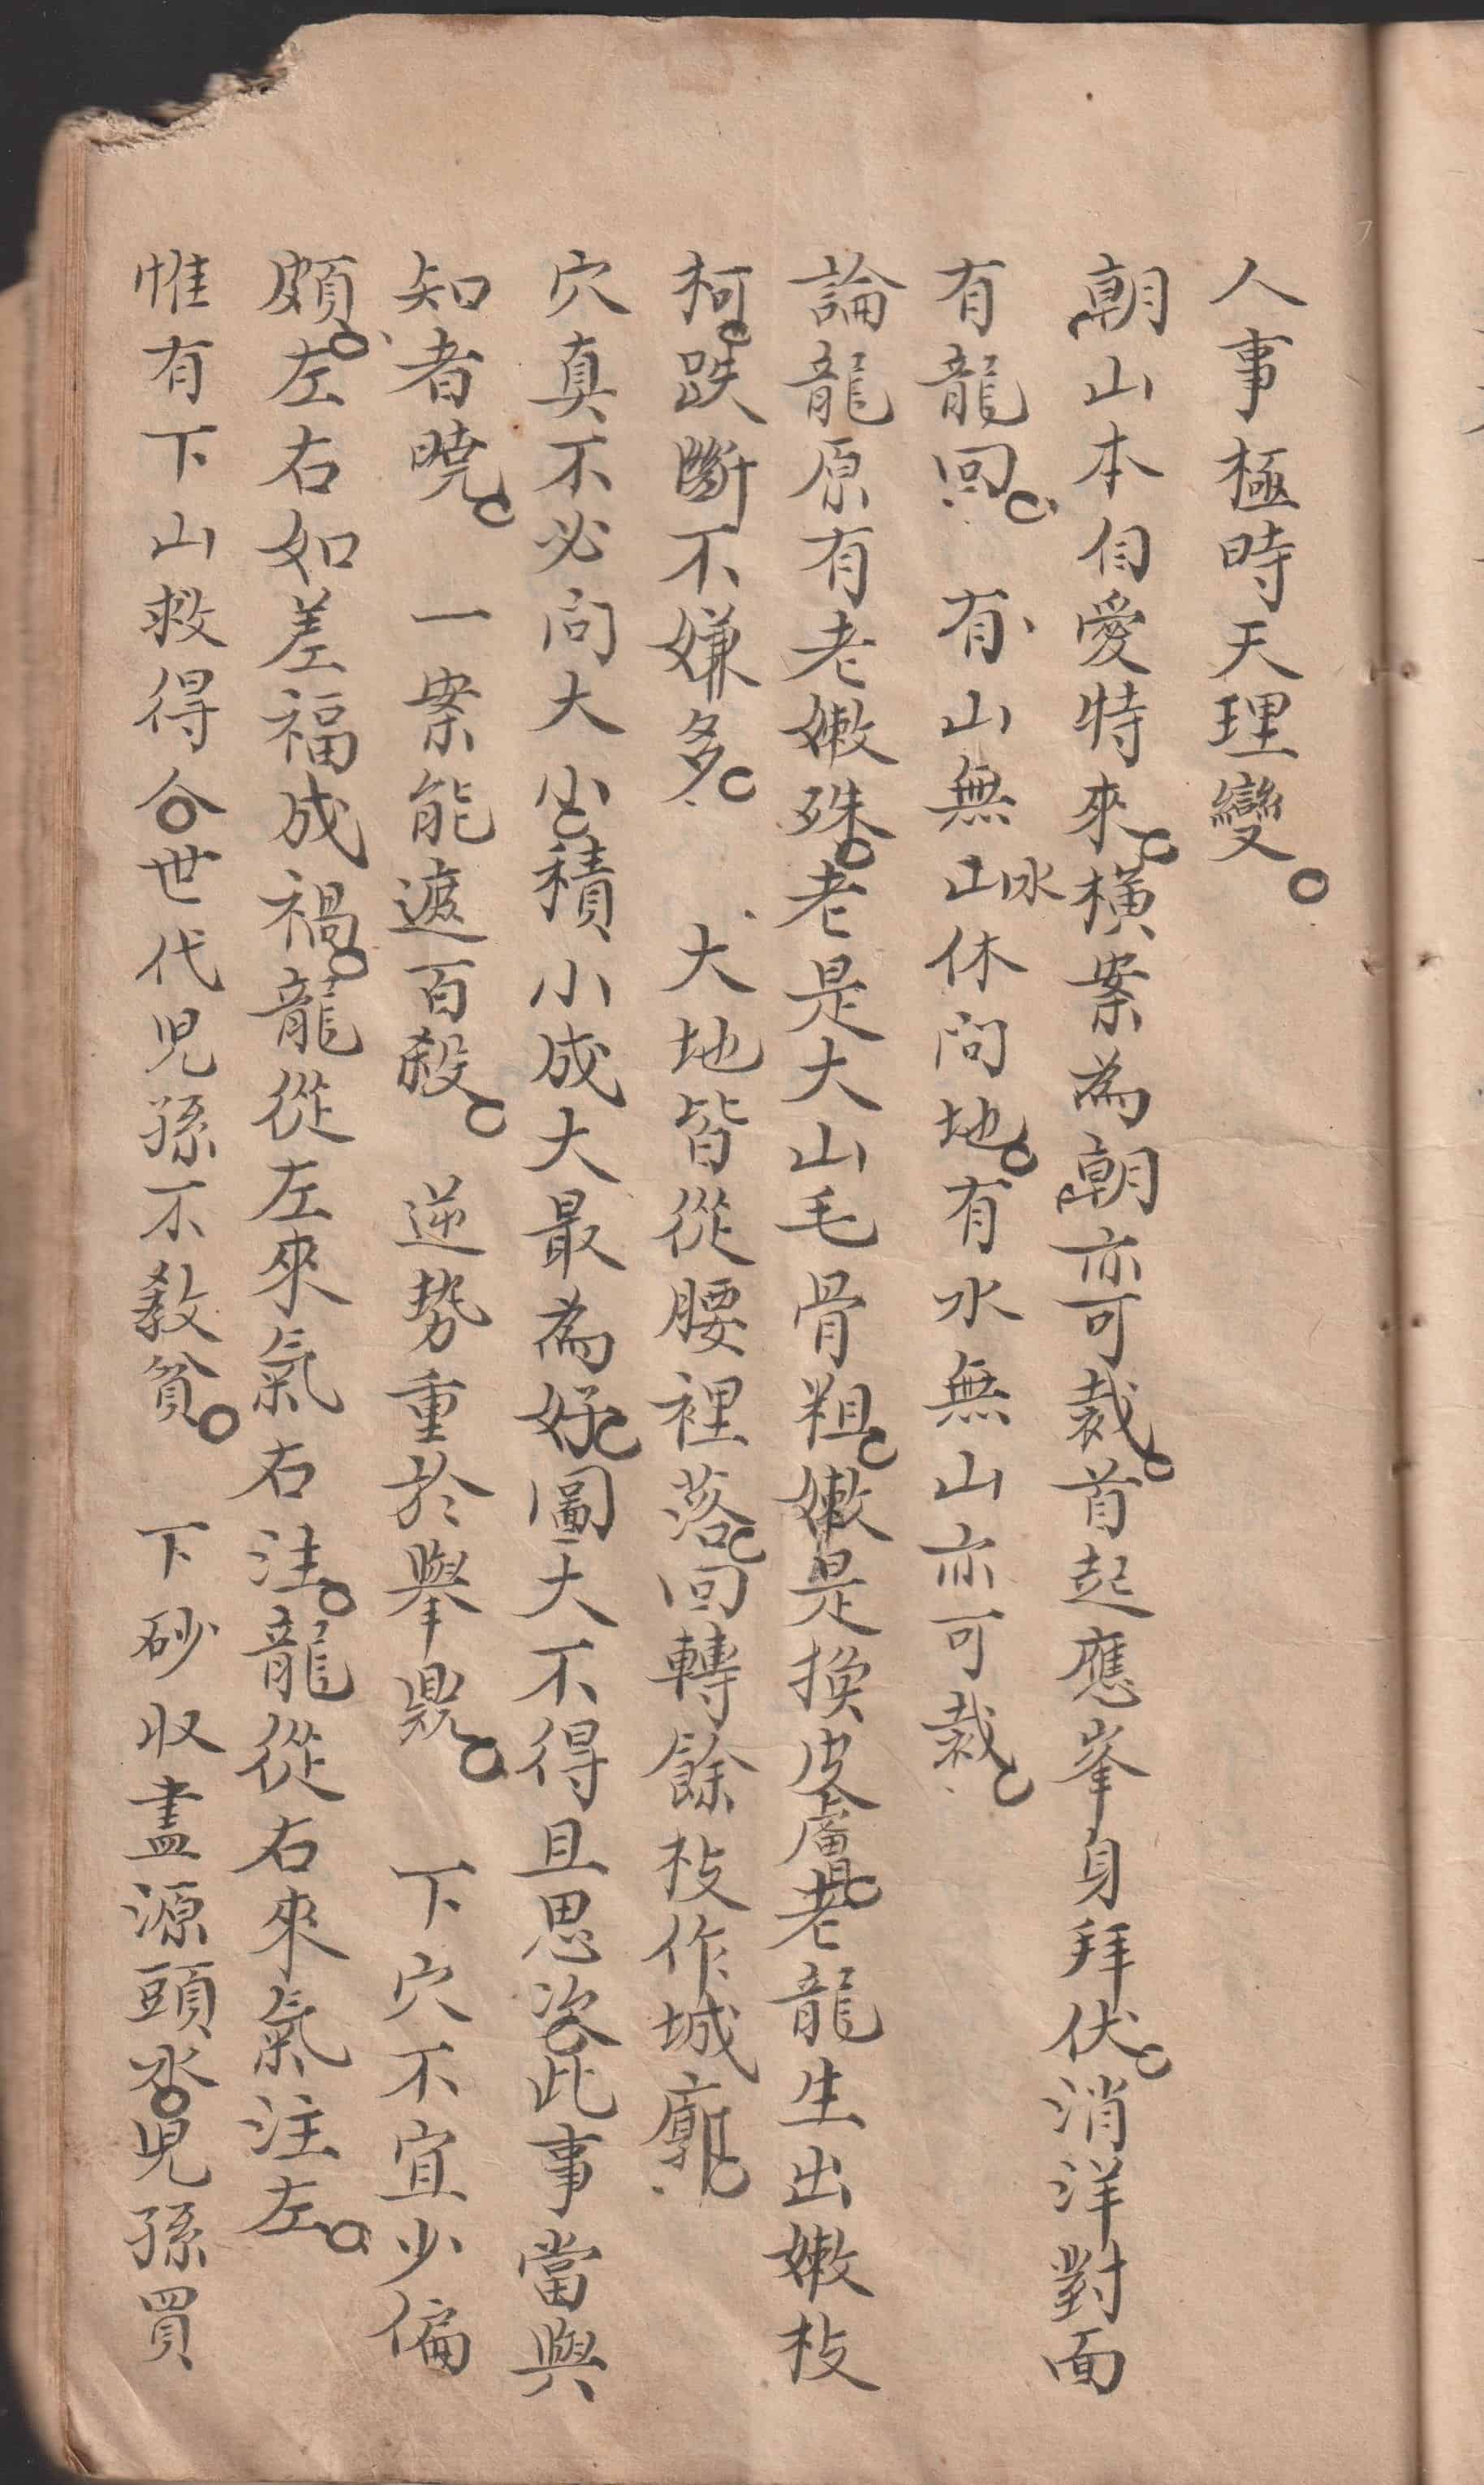 人事極時天理變。
朝山本自愛特來。橫案為朝亦可裁。首起應峯身拜伏。消洋對面
有龍回。　有山無水休問地。有水無山亦可裁。
論龍原有老嫩殊。老是大山毛骨粗。嫩是換皮膚。老龍生出嫩枝
柯。跌斷不嫌多。　大地皆從腰裡落。回轉餘枝作城廓。
穴真不必問大小。積小成大最為好。圖大不得且思姿。此事當與
知者曉。　一案能遮百殺。　逆勢重於舉鼎。　下穴不宜少偏
頗。左右如差福成禍。龍從左來氣右注。龍從右來氣注左。
惟有下山救得人。世代児孫不教貧。　下砂收盡源頭水。児孫買